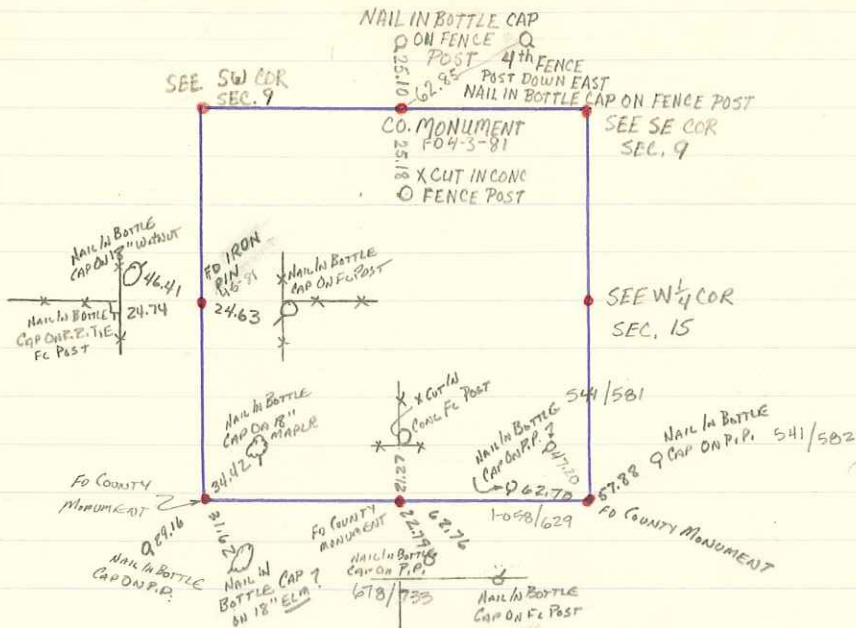 NAIL IN BOTTLE CAP
ON FENCE
POST
25.10
62.85
4th FENCE
POST DOWN EAST
NAIL IN BOTTLE CAP ON FENCE POST
SEE SW COR
SEC. 9
CO. MONUMENT
FD 4-3-81
SEE SE COR
SEC. 9
25.18
X CUT IN CONC
FENCE POST
NAIL IN BOTTLE
CAP ON 18" WALNUT
46.41
NAIL IN BOTTLE
CAP ON R.R. TIE
FC POST
24.74
FD IRON
PIN
24.63
NAIL IN BOTTLE
CAP ON FC POST
SEE W 1/4 COR
SEC. 15
NAIL IN BOTTLE
CAP ON 18"
MAPLE
34.42
X CUT IN
CONC FC POST
NAIL IN BOTTLE
CAP ON P.P. ?
47.20
62.70
541/581
57.88
NAIL IN BOTTLE
CAP ON P.P. 541/582
1-058/629
FD COUNTY MONUMENT
FD COUNTY
MONUMENT
29.16
NAIL IN BOTTLE
CAP ON P.P.
31.62
NAIL IN
BOTTLE CAP ?
ON 18" ELM
FD COUNTY
MONUMENT
22.79
62.76
NAIL IN BOTTLE
CAP ON P.P.
678/733
NAIL IN BOTTLE
CAP ON FC POST